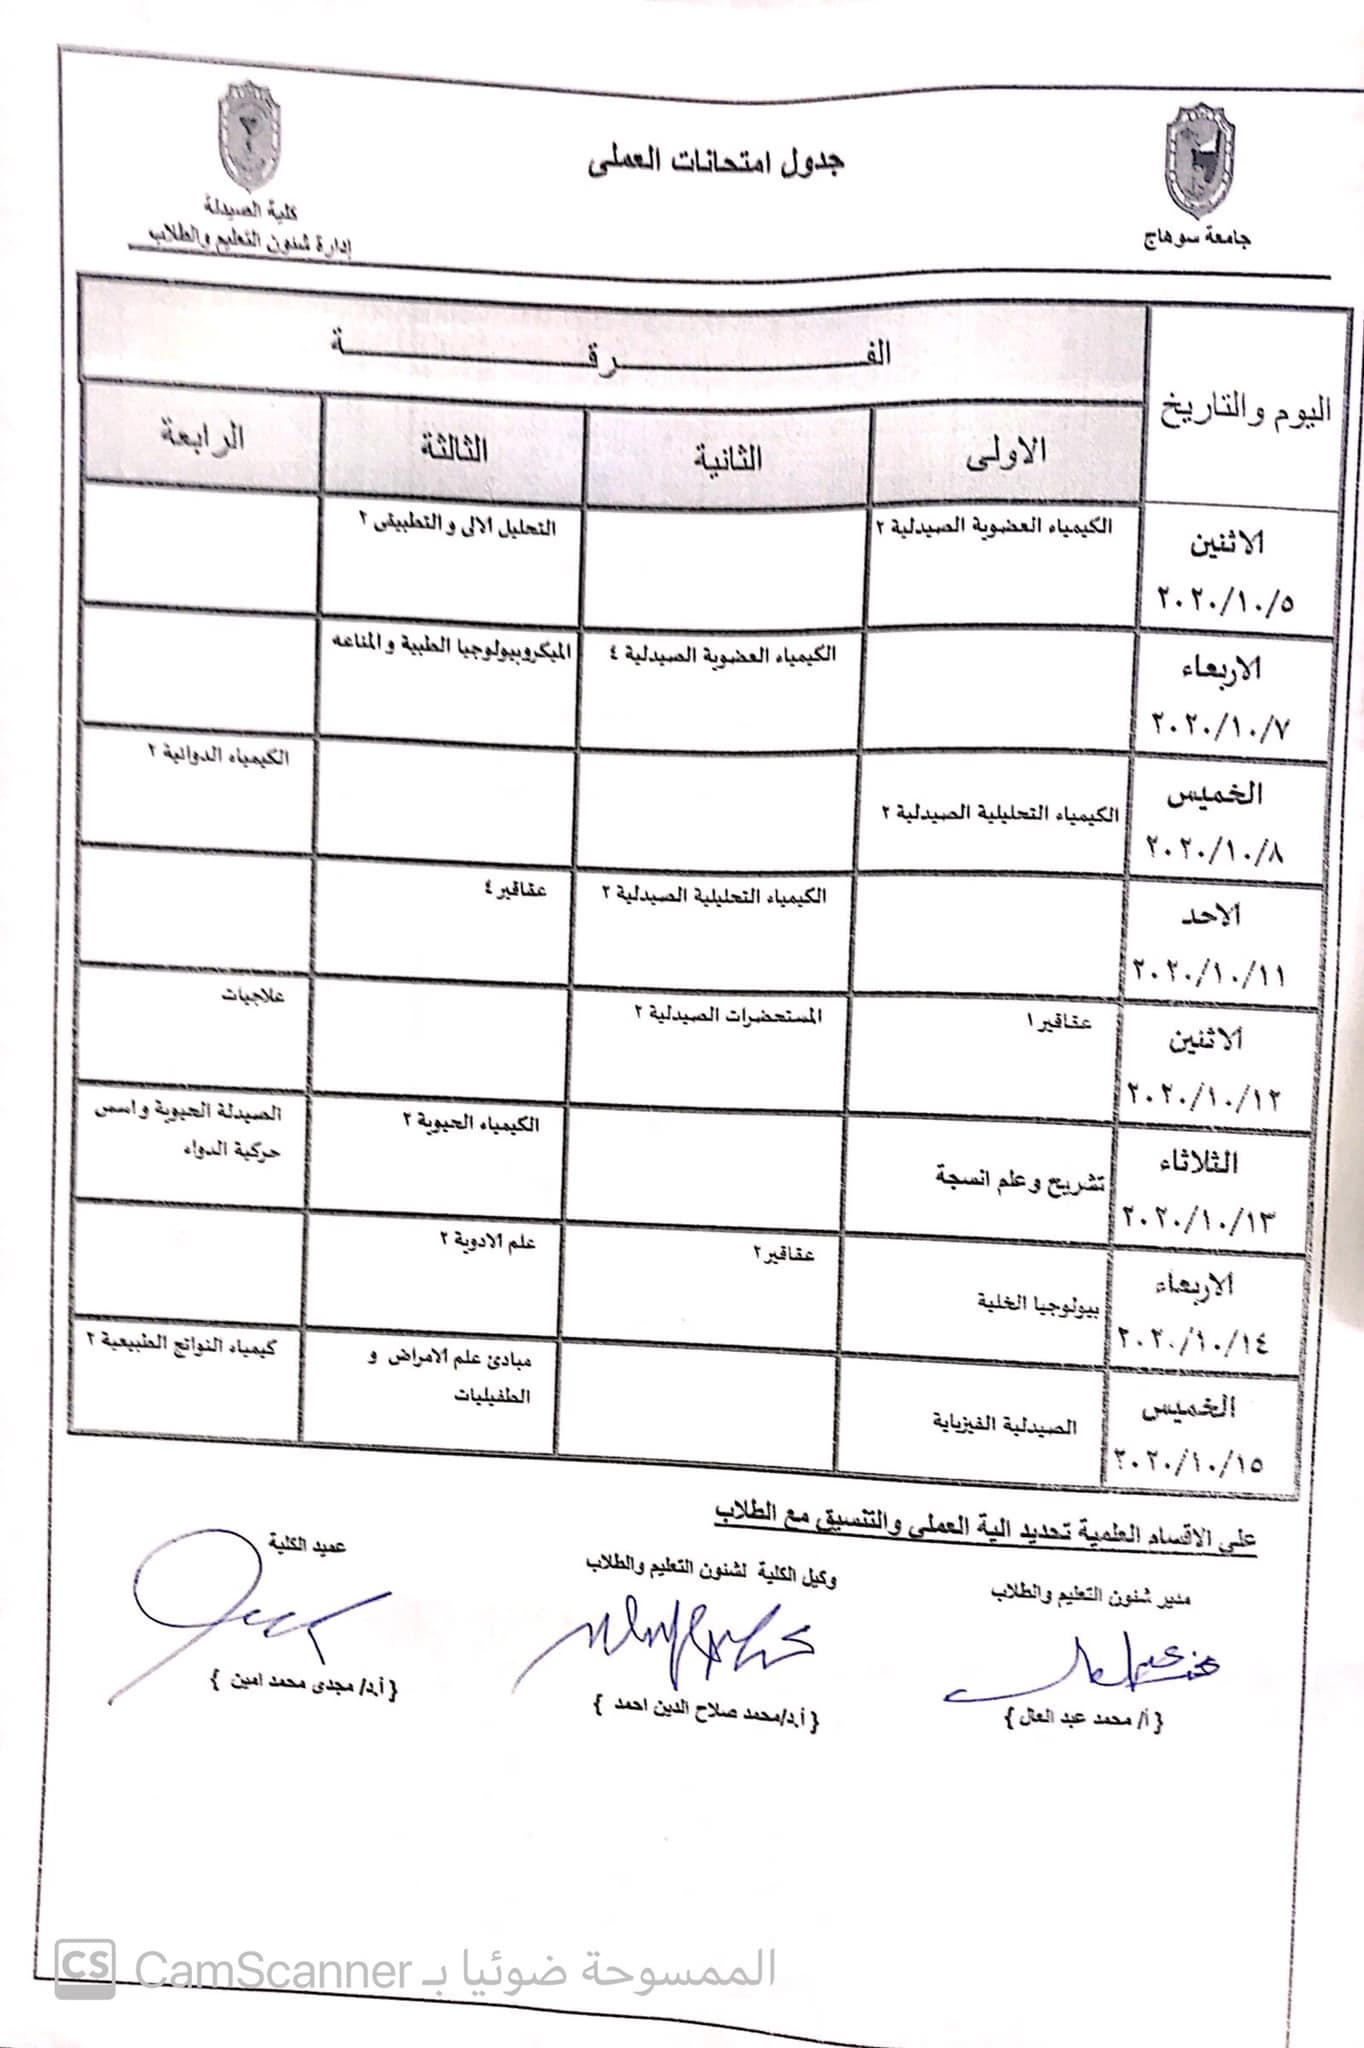 جامعة سوهاج
جدول امتحانات العملى
كلية الصيدلة
إدارة شئون التعليم والطلاب
اليوم والتاريخ
الفـــــرقـــــة
الاولى
الثانية
الثالثة
الرابعة
الاثنين
٢٠٢٠/١٠/٥
الكيمياء العضوية الصيدلية ٢
التحليل الالى والتطبيقى ٢
الاربعاء
٢٠٢٠/١٠/٧
الكيمياء العضوية الصيدلية ٤
الميكروبيولوجيا الطبية والمناعه
الخميس
٢٠٢٠/١٠/٨
الكيمياء التحليلية الصيدلية ٢
الكيمياء الدوائية ٢
الاحد
٢٠٢٠/١٠/١١
الكيمياء التحليلية الصيدلية ٢
عقاقير ٤
الاثنين
٢٠٢٠/١٠/١٢
عقاقير ١
المستحضرات الصيدلية ٢
علاجيات
الثلاثاء
٢٠٢٠/١٠/١٣
تشريح وعلم انسجة
الكيمياء الحيوية ٢
الصيدلة الحيوية واسس
حركية الدواء
الاربعاء
٢٠٢٠/١٠/١٤
بيولوجيا الخلية
عقاقير ٢
علم الادوية ٢
الخميس
٢٠٢٠/١٠/١٥
الصيدلية الفيزياية
مبادئ علم الامراض و
الطفيليات
كيمياء النواتج الطبيعية ٢
على الاقسام العلمية تحديد الية العملى والتنسيق مع الطلاب
مدير شئون التعليم والطلاب
وكيل الكلية لشئون التعليم والطلاب
عميد الكلية
{ أ/ محمد عبد العال }
{ أ.د/محمد صلاح الدين احمد }
{ أ.د/ مجدى محمد امين }
CS الممسوحة ضوئيا بـ CamScanner